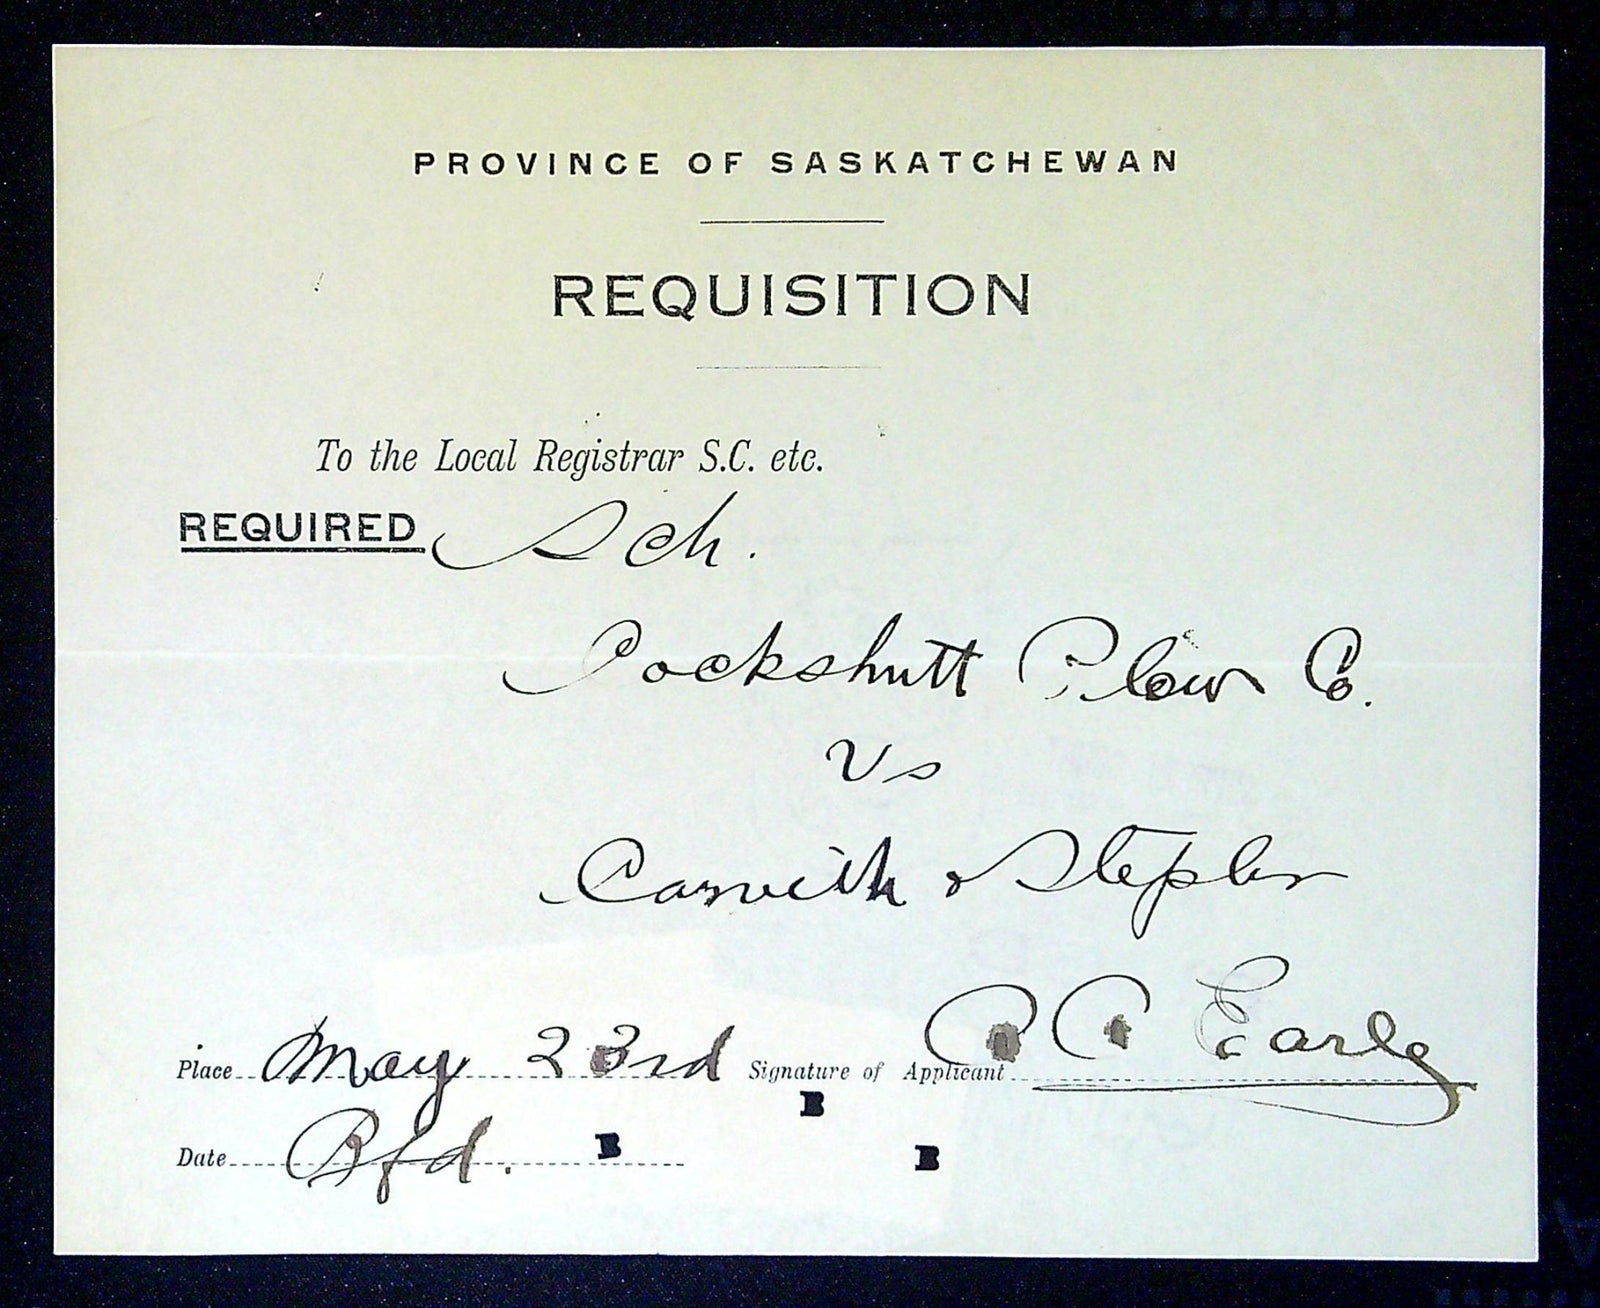 PROVINCE OF SASKATCHEWAN
REQUISITION
To the Local Registrar S.C. etc.
REQUIRED Sch.
Cockshutt Plow Co.
Vs
& Stepler
Place May 23rd Signature of Applicant C C Earle
Date Bfd.
B
B
B